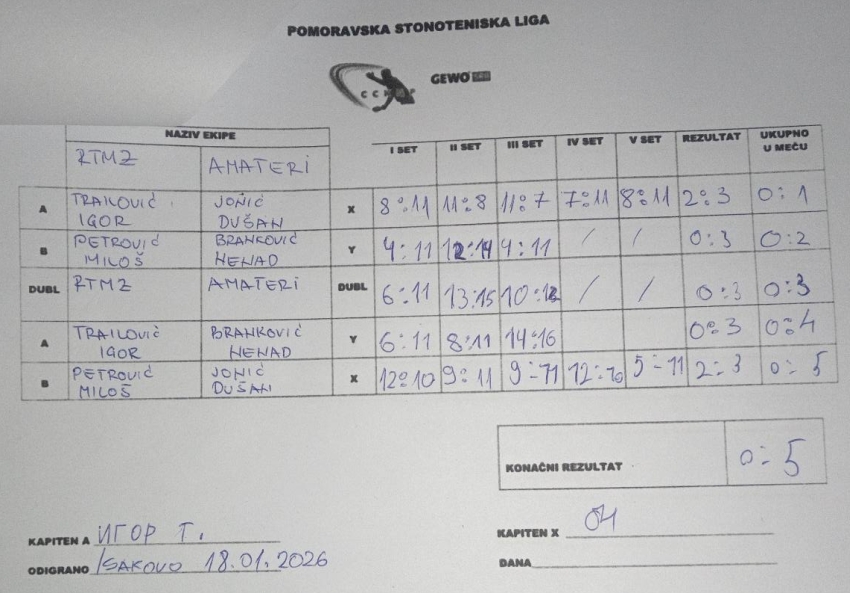 POMORAVSKA STONOTENISKA LIGA
GEWO
NAZIV EKIPE
I SET II SET III SET IV SET V SET REZULTAT UKUPNO U MEČU
RTMZ AMATERI
A TRAILOVIĆ IGOR JONIĆ DUŠAN X 8:11 11:8 11:7 7:11 8:11 2:3 0:1
B PETROVIĆ MILOŠ BRANKOVIĆ NENAD Y 4:11 12:14 4:11 / / 0:3 0:2
DUBL RTMZ AMATERI DUBL 6:11 13:15 10:12 / / 0:3 0:3
A TRAILOVIĆ IGOR BRANKOVIĆ NENAD Y 6:11 8:11 14:16 0:3 0:4
B PETROVIĆ MILOŠ JONIĆ DUŠAN X 12:10 9:11 9:11 12:10 5:11 2:3 0:5
KONAČNI REZULTAT 0:5
KAPITEN A ИГОР Т.
KAPITEN X
ODIGRANO ISAKOVO 18.01.2026
DANA